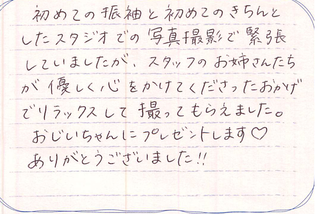 初めての振袖と初めてのきちんと
したスタジオでの写真撮影で緊張
していましたが、スタッフのお姉さんたち
が優しく心をかけてくださったおかげ
でリラックスして撮ってもらえました。
おじいちゃんにプレゼントします♡
ありがとうございました!!